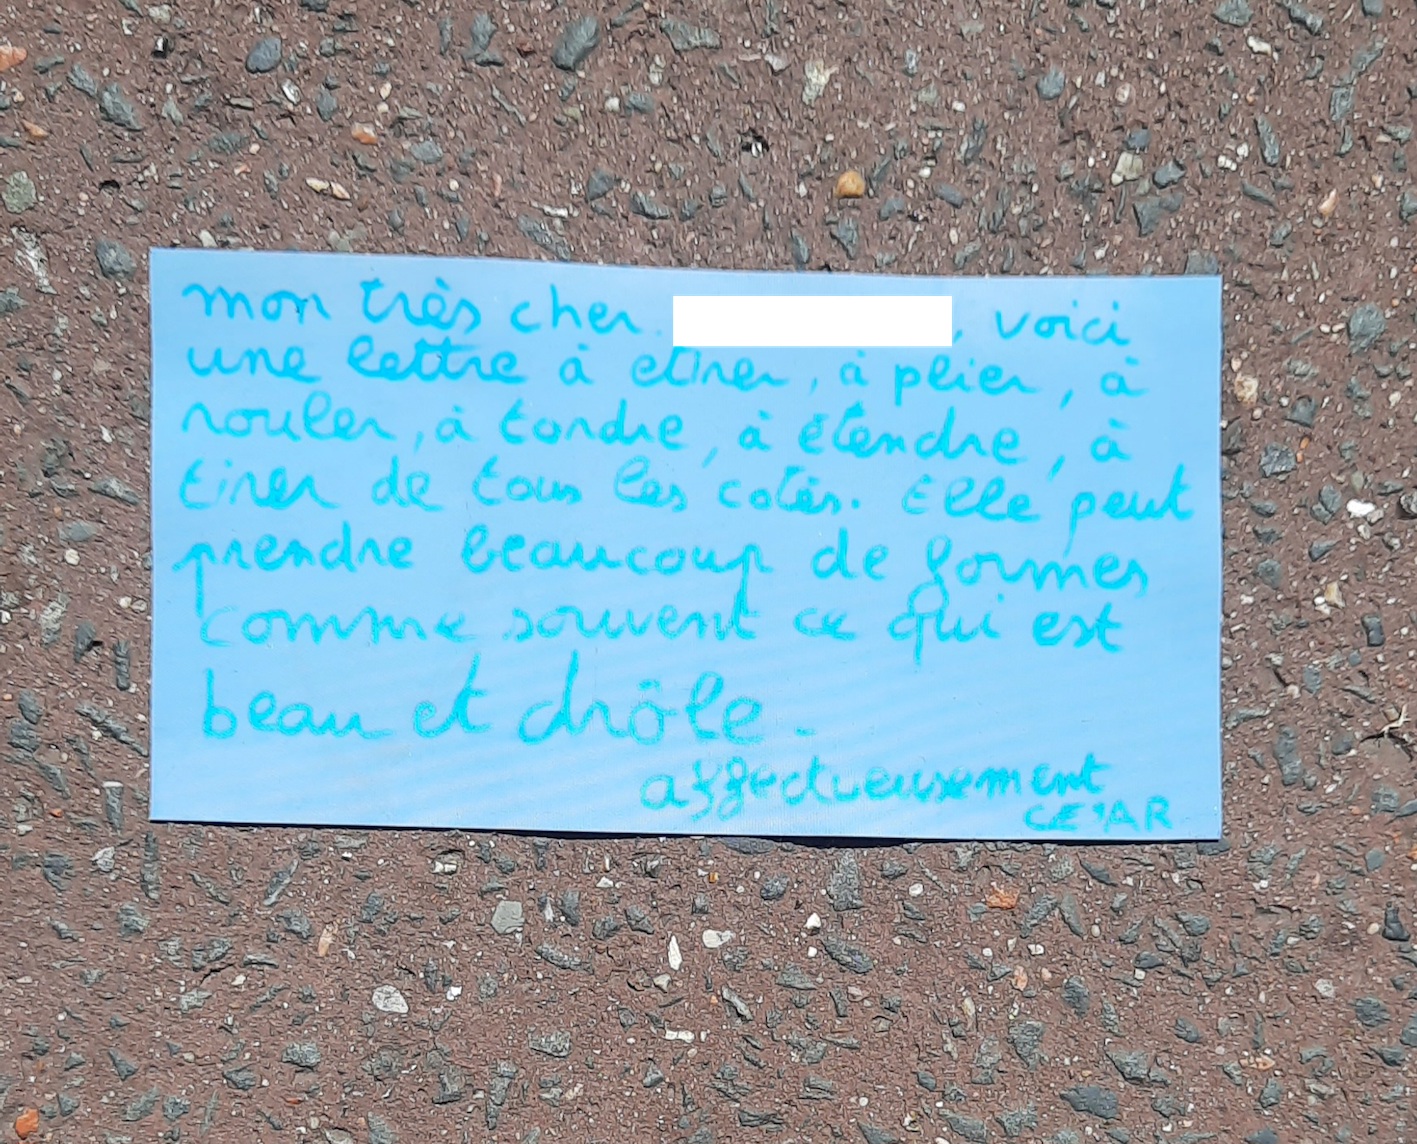 mon très cher , voici
une lettre à etirer, à plier, à
rouler, à tordre, à étendre, à
tirer de tous les cotés. Elle peut
prendre beaucoup de formes
comme souvent ce qui est
beau et drôle.
affectueusement
CESAR